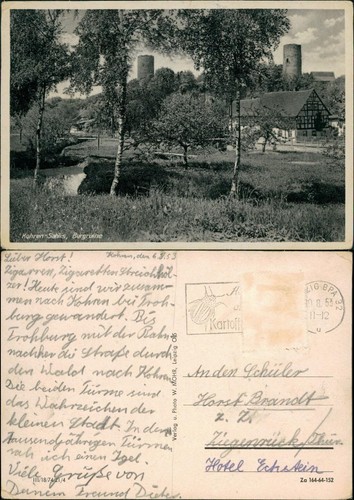 Kohren-Sahlis, Burgruine
Kohren, den 6.8.53
Lieber Horst!
Zigarren, Zigaretten Streichhöl-
zer! Heute sind wir zusam-
men nach Kohren bei Froh-
burg gewandert. Bis
Frohburg mit der Bahn
nachher die Straße durch
den Wald nach Kohren.
Die beiden Türme sind
das Wahrzeichen der
kleinen Stadt. In den
tausendjährigen Türmen
sah ich einen Igel.
Viele Grüße von
Deinem Freund Dieter
III/18/74
Verlag u. Photo W. MOHR, Leipzig O5
Kartoff
ZIG BPA 32
11-12
u
An den Schüler
Horst Brandt
z. Zt.
Ziegenrück/Thür.
Hotel Eckstein
Za 164-44-152